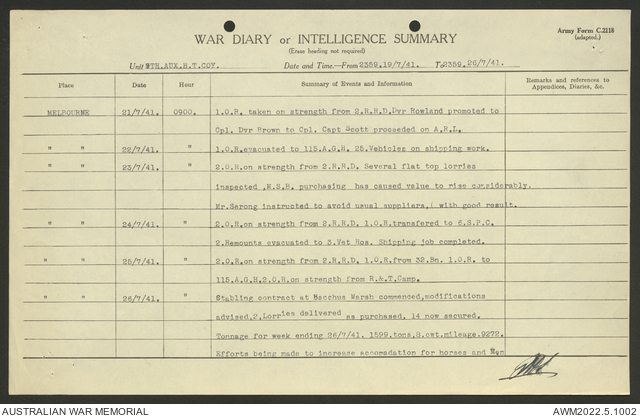 WAR DIARY or INTELLIGENCE SUMMARY
Army Form C.2118
(adapted.)
(Erase heading not required)
Unit WTH.AUX.H.T.COY. Date and Time.—From 2359.19/7/41. To 2359.26/7/41.
Place Date Hour Summary of Events and Information Remarks and references to Appendices, Diaries, &c.
MELBOURNE 21/7/41. 0900. 1.O.R. taken on strength from 2.R.R.D.Dvr Rowland promoted to
Cpl. Dvr Brown to Cpl. Capt Scott proceeded on A.R.L.
" " 22/7/41. " 1.O.R.evacuated to 115.A.G.H. 25.Vehicles on shipping work.
" " 23/7/41. " 2.O.R.on strength from 2.R.R.D. Several flat top lorries
inspected ,M.S.B. purchasing has caused value to rise considerably.
Mr.Serong instructed to avoid usual suppliers,( with good result.
" " 24/7/41. " 2.O.R.on strength from 2.R.R.D. 1.O.R.transfered to 6.S.P.C.
2.Remounts evacuated to 3.Vet Hos. Shipping job completed.
" " 25/7/41. " 2.O.R.on strength from 2.R.R.D. 1.O.R.from 32.Bn. 1.O.R. to
115.A.G.H.2.O.R.on strength from R.&.T.Camp.
" " 26/7/41. " Stabling contract at Bacchus Marsh commenced,modifications
advised.2.Lorries delivered as purchased. 14 now secured.
Tonnage for week ending 26/7/41. 1599.tons,8.cwt.mileage.9272.
Efforts being made to increase accoradation for horses and Men
AUSTRALIAN WAR MEMORIAL
AWM2022.5.1002